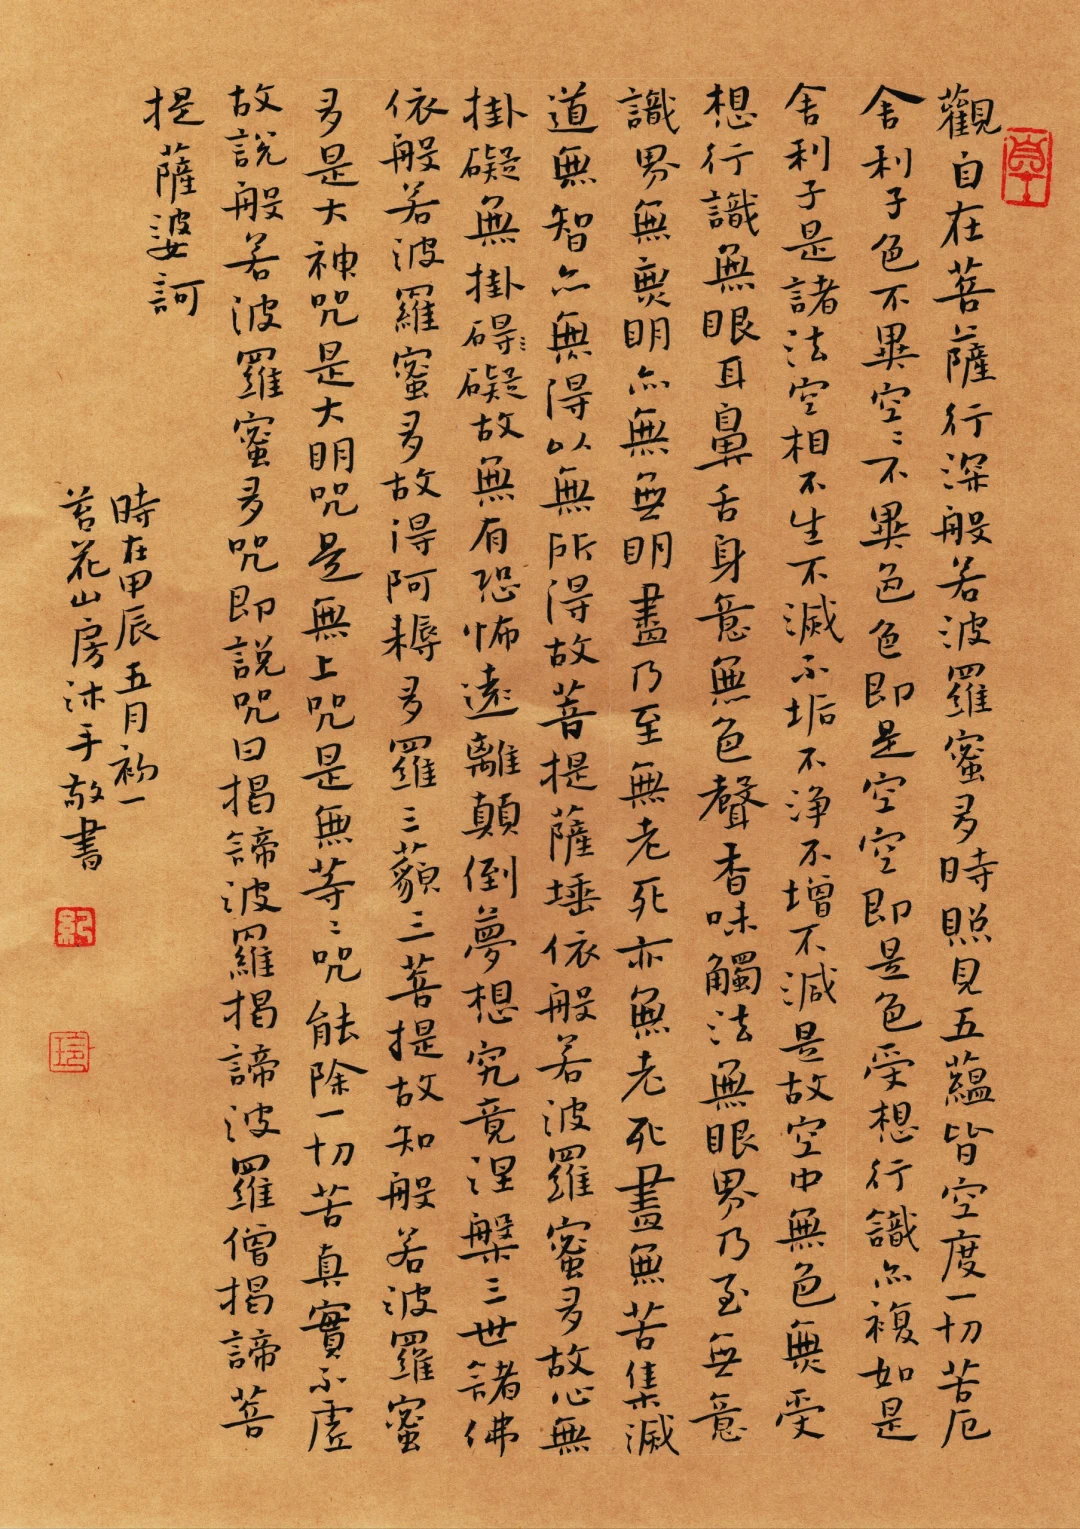 觀自在菩薩行深般若波羅蜜多時照見五蘊皆空度一切苦厄
舍利子色不異空〻不異色色即是空空即是色受想行識亦複如是
舍利子是諸法空相不生不滅不垢不淨不增不減是故空中無色無受
想行識無眼耳鼻舌身意無色聲香味觸法無眼界乃至無意
識界無無明亦無無明盡乃至無老死亦無老死盡無苦集滅
道無智亦無得以無所得故菩提薩埵依般若波羅蜜多故心無
掛礙無掛碍〻礙故無有恐怖遠離顛倒夢想究竟涅槃三世諸佛
依般若波羅蜜多故得阿耨多羅三藐三菩提故知般若波羅蜜
多是大神咒是大明咒是無上咒是無等〻咒能除一切苦真實不虛
故說般若波羅蜜多咒即說咒曰揭諦波羅揭諦波羅僧揭諦菩
提薩婆訶
時在甲辰五月初一
苕花山房沐手敬書